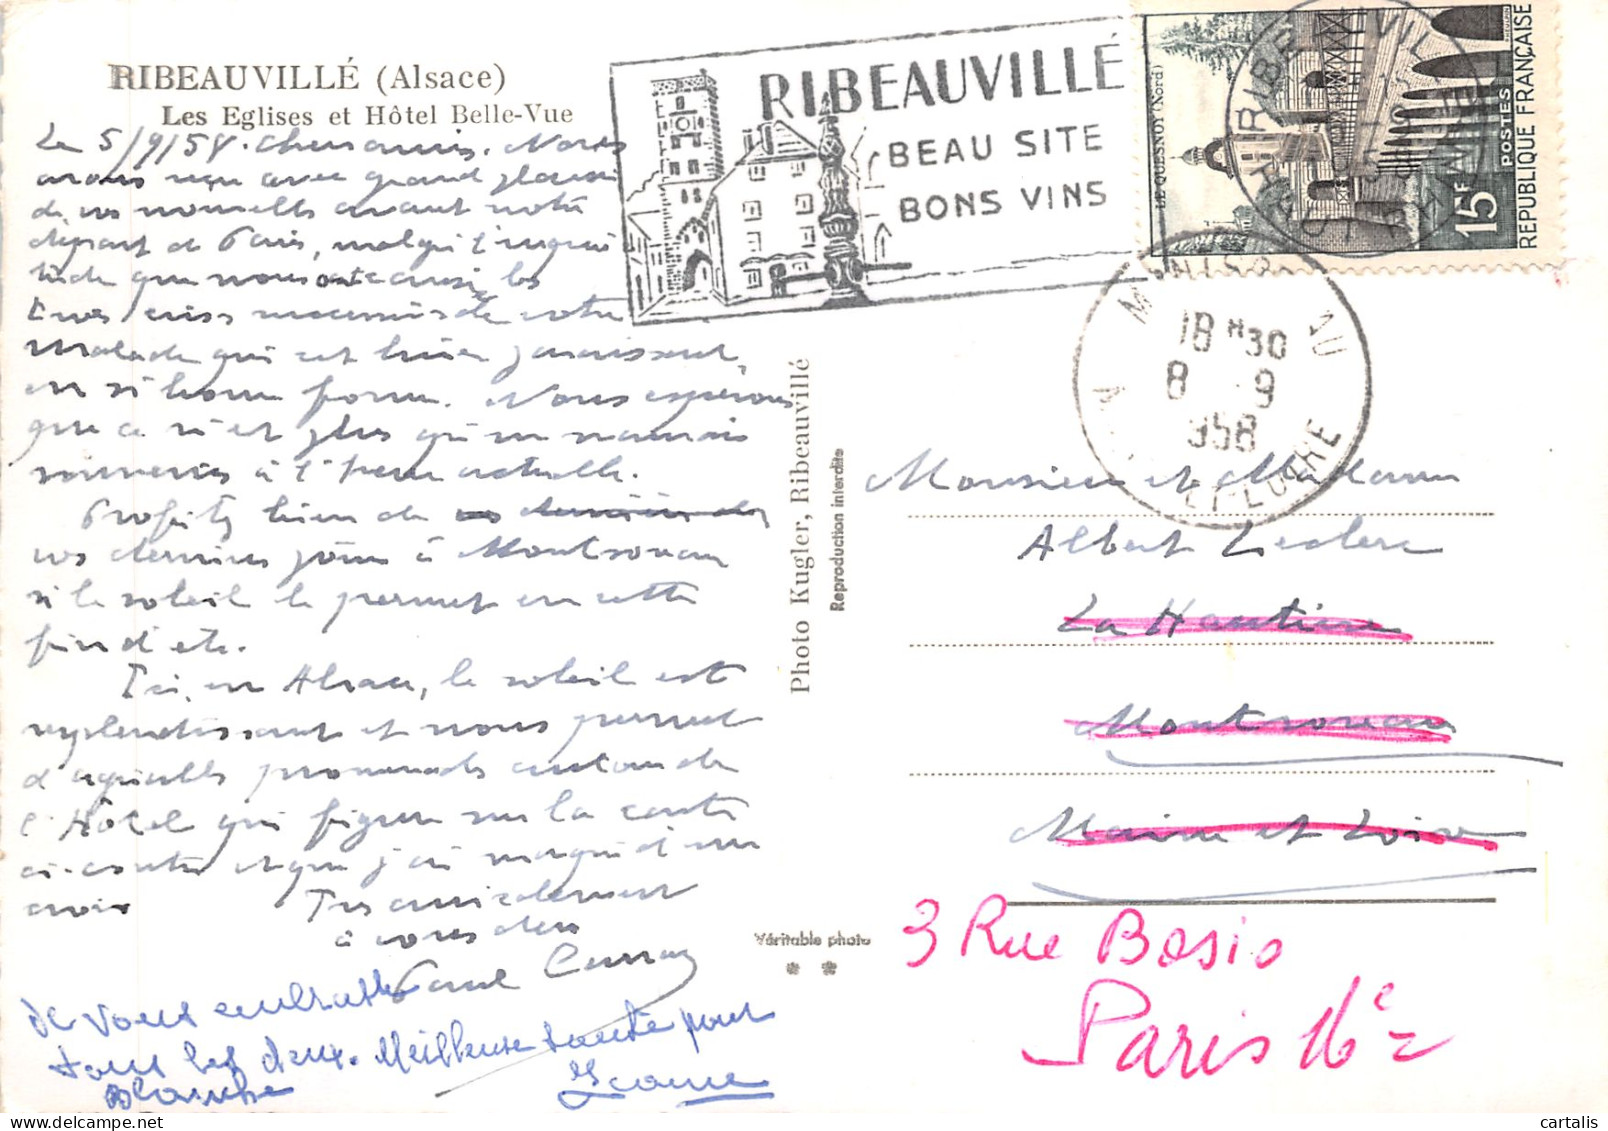 RIBEAUVILLÉ (Alsace)
Les Eglises et Hôtel Belle-Vue
Le 5/9/58. Chers amis. Nous
avons reçu avec grand plaisir
de vos nouvelles avant notre
départ de Paris, malgré l'inquié
tude que nous ont causé les
crises successives de votre
malade qui est hier
en si bonne forme. Nous espérons
que ce n'est plus qu'un mauvais
souvenir à l'heure actuelle.
Profitez bien de
vos derniers jours à Montsoreau
si le soleil le permet en cette
fin d'été.
Ici, en Alsace, le soleil est
resplendissant et nous permet
d'agréables promenades autour de
l'Hôtel qui figure sur la carte
ci-contre et que j'ai marqué d'une
croix
Très amicalement
à vous deux
Paul
Je vous embrasse
tous les deux. Meilleure santé pour
Blanche
RIBEAUVILLÉ
BEAU SITE
BONS VINS
LE QUESNOY (Nord)
15F
POSTES
REPUBLIQUE FRANÇAISE
RIBEAUVILLE
HAUT-RHIN
18 H 30
8 - 9
958
MAINE-ET-LOIRE
Photo Kugler, Ribeauvillé
Reproduction interdite
Véritable photo
Monsieur et Madame
Albert Leclerc
La Hautière
Montsoreau
Maine et Loire
3 Rue Bosio
Paris 16e